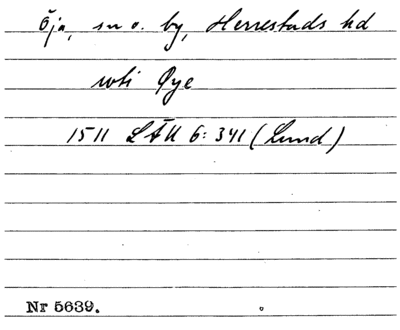 Öja, sn o. by, Herrestads hd
uti Øye
1511 LÄU 6:341 (Lund)
Nr 5639.